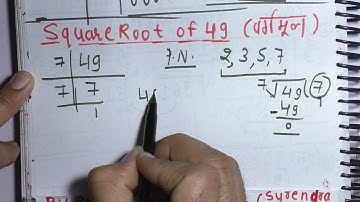 Square Root of 49 (वर्गमूल)
7 | 49
7 | 7
1
P.N.
2, 3, 5, 7
4
7√49(7
-49
0
(Surendra